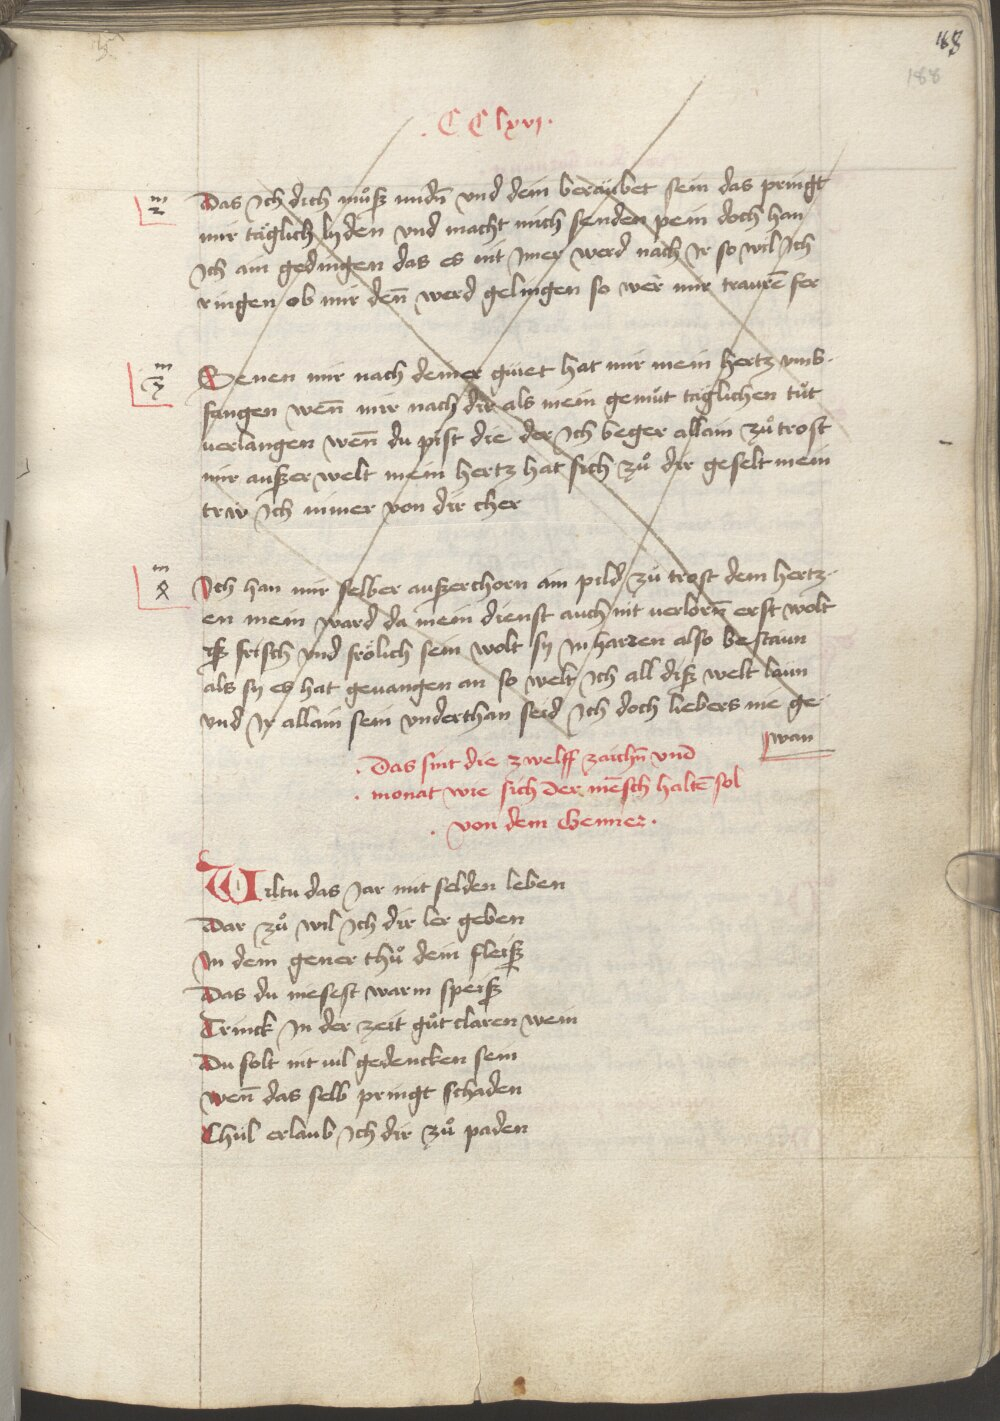 188
188
. CClxvi .
m
2
Das Ich dich můſz midn̄ vnd dein beraubet ſein das pringt
mir täglich lyden vnd macht mich ſenden pein doch han
Ich ain gedingen das es nit Imer werd nach Ir ſo wil Ich
ringen ob mir den̄ werd gelingen ſo wer mir traurē fer
m
3
Senen mir nach deiner güiet hat mir mein hertz vmb-
fangen wen̄ mir nach dir als mein gemůt täglichen tůt
uerlangen wen̄ du piſt die der Ich beger allain zů troſt
mir auſzer welt mein hertz hat ſich zů dir geſelt mein
triw Ich nimer von dir cher
m
4
Ich han mir ſelber auſzerchorn ain pild zů troſt dem hertz-
en mein ward da mein dienſt auch nit uerlorn̄ erſt wolt
Iſz friſch vnd frölich ſein wolt ſy In harren alſo beſtaun
als ſy es hat geuangen an ſo welt Ich all diſz welt laun
vnd Ir allain ſein vnderthan ſeid Ich doch liebers nie ge-
wan
. Das ſint die zwelff zaichn̄ vnd
. monat wie ſich der mēſch haltē ſol
. von dem Genner .
Wiltu das Jar mit ſelden leben
Dar zů wil Ich dir ler geben
In dem gener thů dein fleiſz
Das du neſeſt warm ſpeiſz
Trinck In der zeit gůt claren wein
Du ſolt nit uil gedencken ſein
wen̄ das ſelb pringt ſchaden
Chül erlaub Ich dir zů paden